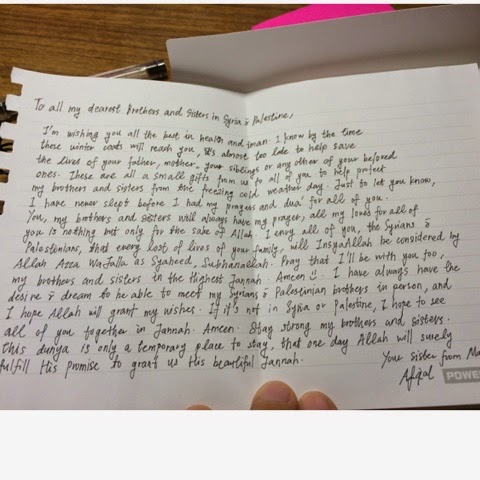 To all my dearest Brothers and Sisters in Syria & Palestine,
I'm wishing you all the best in health and iman. I know by the time
these winter coats will reach you, it's almost too late to help save
the lives of your father, mother, your siblings or any other of your beloved
ones. These are all a small gifts from us to all of you to help protect
my brothers and sisters from the freezing cold weather day. Just to let you know,
I have never slept before I had my prayers and dua' for all of you.
You, my brothers and sisters will always have my prayer, all my loves for all of
you is nothing but only for the sake of Allah. I envy all of you, the Syrians &
Palestinians, that every lost of lives of your family, will InsyaAllah be considered by
Allah Azza WaJalla as Syaheed, Subhanallah. Pray that I'll be with you too,
my brothers and sisters in the highest Jannah. Ameen. I have always the
desire & dream to be able to meet my Syrians & Palestinian brothers in person, and
I hope Allah wil grant my wishes. If it's not in Syria or Palestine, I hope to see
all of you together in Jannah. Ameen. Stay strong my brothers and sisters.
this dunya is only a temporary place to stay, that one day Allah will surely
fulfill His promise to grant us His beautiful Jannah.
Your sister from Ma
POWE